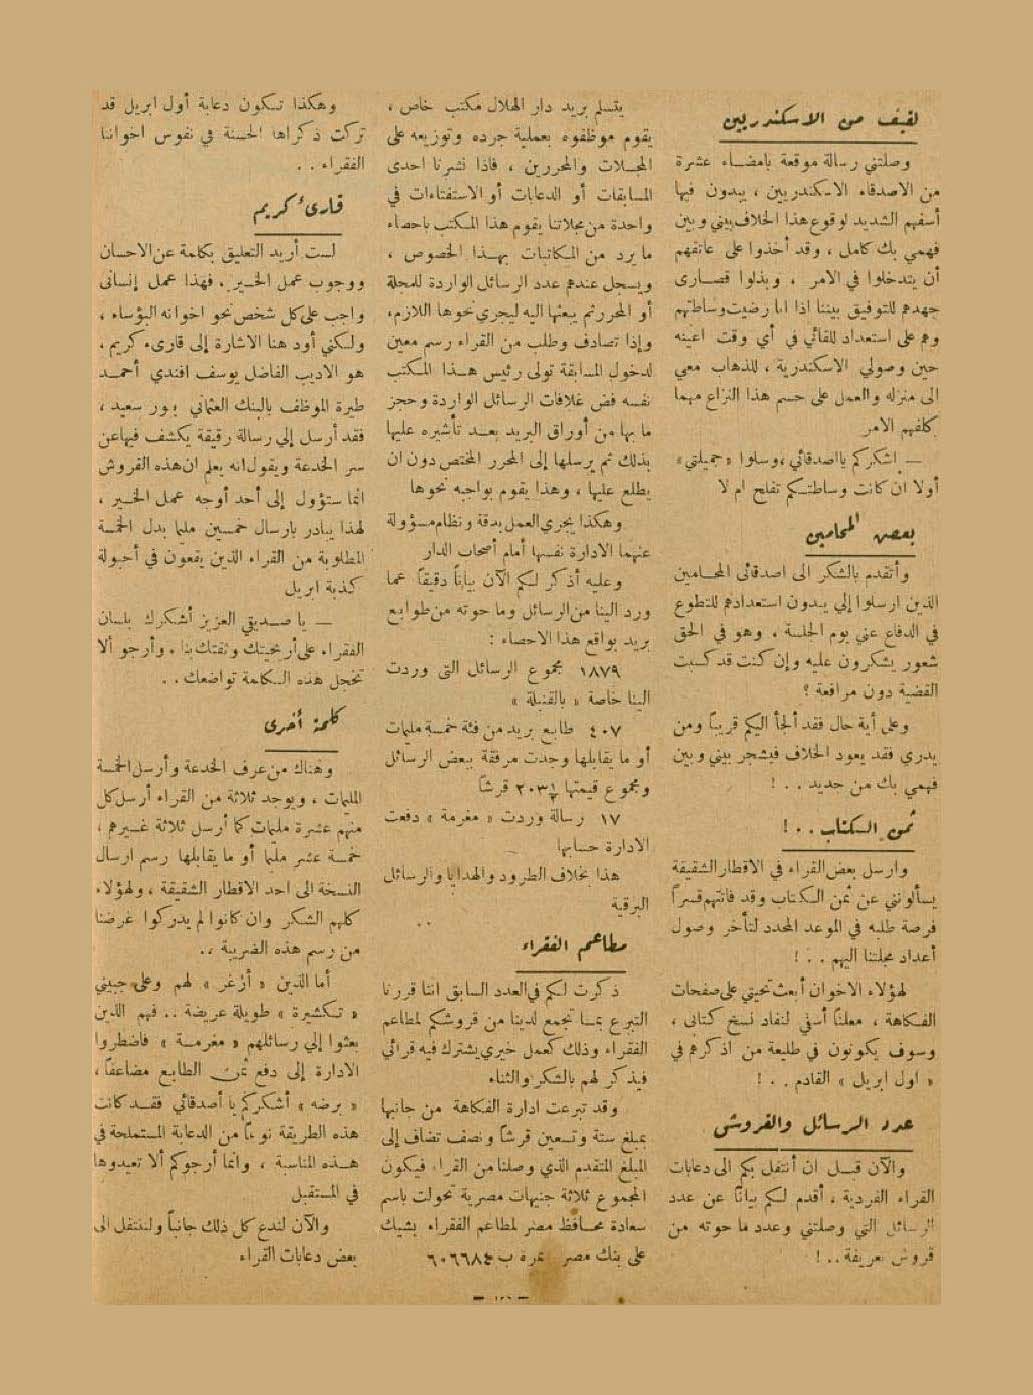 لفيف من الاسكندريين
وصلتني رسالة موقعة بامضاء عشرة
من الاصدقاء الاسكندريين ، يبدون فيها
أسفهم الشديد لوقوع هذا الخلاف بيني وبين
فهمي بك كامل ، وقد أخذوا على عاتقهم
أن يتدخلوا في الامر ، ويبذلوا قصارى
جهدهم للتوفيق بيننا اذا انا رضيت وساطتهم
وهم على استعداد للقائي في أي وقت اعينه
حين وصولي الاسكندرية ، للذهاب معي
الى منزله والعمل على حسم هذا النزاع مهما
كلفهم الامر
— اشكركم يا اصدقائي ، وسلوا « جميلتي »
أولا ان كانت وساطتكم تفلح ام لا
بعض المحامين
وأتقدم بالشكر الى اصدقائى المحامين
الذين ارسلوا إلي يبدون استعدادهم للتطوع
في الدفاع عني يوم الجلسة ، وهو في الحق
شعور يشكرون عليه وإن كنت قد كسبت
القضية دون مرافعة ؟
وعلى أية حال فقد ألجأ اليكم قريباً ومن
يدري فقد يعود الخلاف فيشجر بيني وبين
فهمي بك من جديد . . !
ثمن الكتاب . . !
وارسل بعض القراء في الاقطار الشقيقة
يسألونني عن ثمن الكتاب وقد فاتتهم قسراً
فرصة طلبه في الموعد المحدد لتأخر وصول
أعداد مجلتنا اليهم . . !
لهؤلاء الاخوان أبعث تحيتي على صفحات
الفكاهة ، معلناً أسفي لنفاد نسخ كتابى ،
وسوف يكونون في طليعة من اذكرهم في
« اول ابريل » القادم . . !
عدد الرسائل والقروش
والآن قبل ان أنتقل بكم الى دعابات
القراء الفردية ، أقدم لكم بياناً عن عدد
الرسائل التي وصلتني وعدد ما حوته من
قروش تعريفة . . !
يتسلم بريد دار الهلال مكتب خاص ،
يقوم موظفوه بعملية جرده وتوزيعه على
المجلات والمحررين ، فاذا نشرنا احدى
المسابقات أو الدعابات أو الاستفتاءات في
واحدة من مجلاتنا يقوم هذا المكتب باحصاء
ما يرد من المكاتبات بهذا الخصوص ،
ويسجل عندهم عدد الرسائل الواردة للمجلة
أو المحرر ثم يبعثها اليه ليجري نحوها اللازم ،
وإذا تصادف وطلب من القراء رسم معين
لدخول المسابقة تولى رئيس هذا المكتب
نفسه فض غلافات الرسائل الواردة وحجز
ما بها من أوراق البريد بعد تأشيره عليها
بذلك ثم يرسلها إلى المحرر المختص دون ان
يطلع عليها ، وهذا يقوم بواجبه نحوها
وهكذا يجري العمل بدقة ونظام مسؤولة
عنهما الادارة نفسها أمام أصحاب الدار
وعليه أذكر لكم الآن بياناً دقيقاً عما
ورد الينا من الرسائل وما حوته من طوابع
بريد بواقع هذا الاحصاء :
١٨٧٩ مجموع الرسائل التى وردت
الينا خاصة « بالقنبلة »
٤٠٧ طابع بريد من فئة خمسة مليمات
أو ما يقابلها وجدت مرفقة ببعض الرسائل
ومجموع قيمتها ٢٠٣½ قرشاً
١٧ رسالة وردت « مغرمة » دفعت
الادارة حسابها
هذا بخلاف الطرود والهدايا والرسائل
البرقية
مطاعم الفقراء
ذكرت لكم في العدد السابق اننا قررنا
التبرع بما تجمع لدينا من قروشكم لمطاعم
الفقراء وذلك كعمل خيري يشترك فيه قرائي
فيذكر لهم بالشكر والثناء
وقد تبرعت ادارة الفكاهة من جانبها
بمبلغ ستة وتسعين قرشاً ونصف تضاف إلى
المبلغ المتقدم الذي وصلنا من القراء فيكون
المجموع ثلاثة جنيهات مصرية تحولت باسم
سعادة محافظ مصر لمطاعم الفقراء بشيك
على بنك مصر نمرة ب ٦٠٦٦٨٤
وهكذا تكون دعابة أول ابريل قد
تركت ذكراها الحسنة في نفوس اخواننا
الفقراء . .
قارىء كريم
لست أريد التعليق بكلمة عن الاحسان
ووجوب عمل الخير . فهذا عمل إنسانى
واجب على كل شخص نحو اخوانه البؤساء ،
ولكني أود هنا الاشارة إلى قارىء كريم .
هو الاديب الفاضل يوسف افندي أحمد
طيرة الموظف بالبنك العثماني ببور سعيد ،
فقد أرسل إلي رسالة رقيقة يكشف فيها عن
سر الخدعة ويقول انه يعلم ان هذه القروش
انما ستؤول إلى أحد أوجه عمل الخير ،
لهذا يبادر بارسال خمسين مليما بدل الخمسة
المطلوبة من القراء الذين يقعون في أحبولة
كذبة ابريل
— يا صديقي العزيز أشكرك بلسان
الفقراء على أريحيتك وثقتك بنا . وأرجو ألا
تخجل هذه الكلمة تواضعك . .
كلمة أخرى
وهناك من عرف الخدعة وأرسل الخمسة
المليمات ، ويوجد ثلاثة من القراء أرسل كل
منهم عشرة مليمات كما أرسل ثلاثة غيرهم ،
خمسة عشر مليما أو ما يقابلها رسم ارسال
النسخة الى احد الاقطار الشقيقة ، ولهؤلاء
كلهم الشكر وان كانوا لم يدركوا غرضنا
من رسم هذه الضريبة . .
أما الذين « أزغر » لهم وعلى جبيني
« تكشيرة » طويلة عريضة . . فهم الذين
بعثوا إلي رسائلهم « مغرمة » فاضطروا
الادارة إلى دفع ثمن الطابع مضاعفاً ،
« برضه » أشكركم يا أصدقائي فقد كانت
هذه الطريقة نوعاً من الدعابة المستملحة في
هذه المناسبة ، وانما أرجوكم ألا تعيدوها
في المستقبل
والآن لندع كل ذلك جانباً ولننتقل الى
بعض دعابات القراء